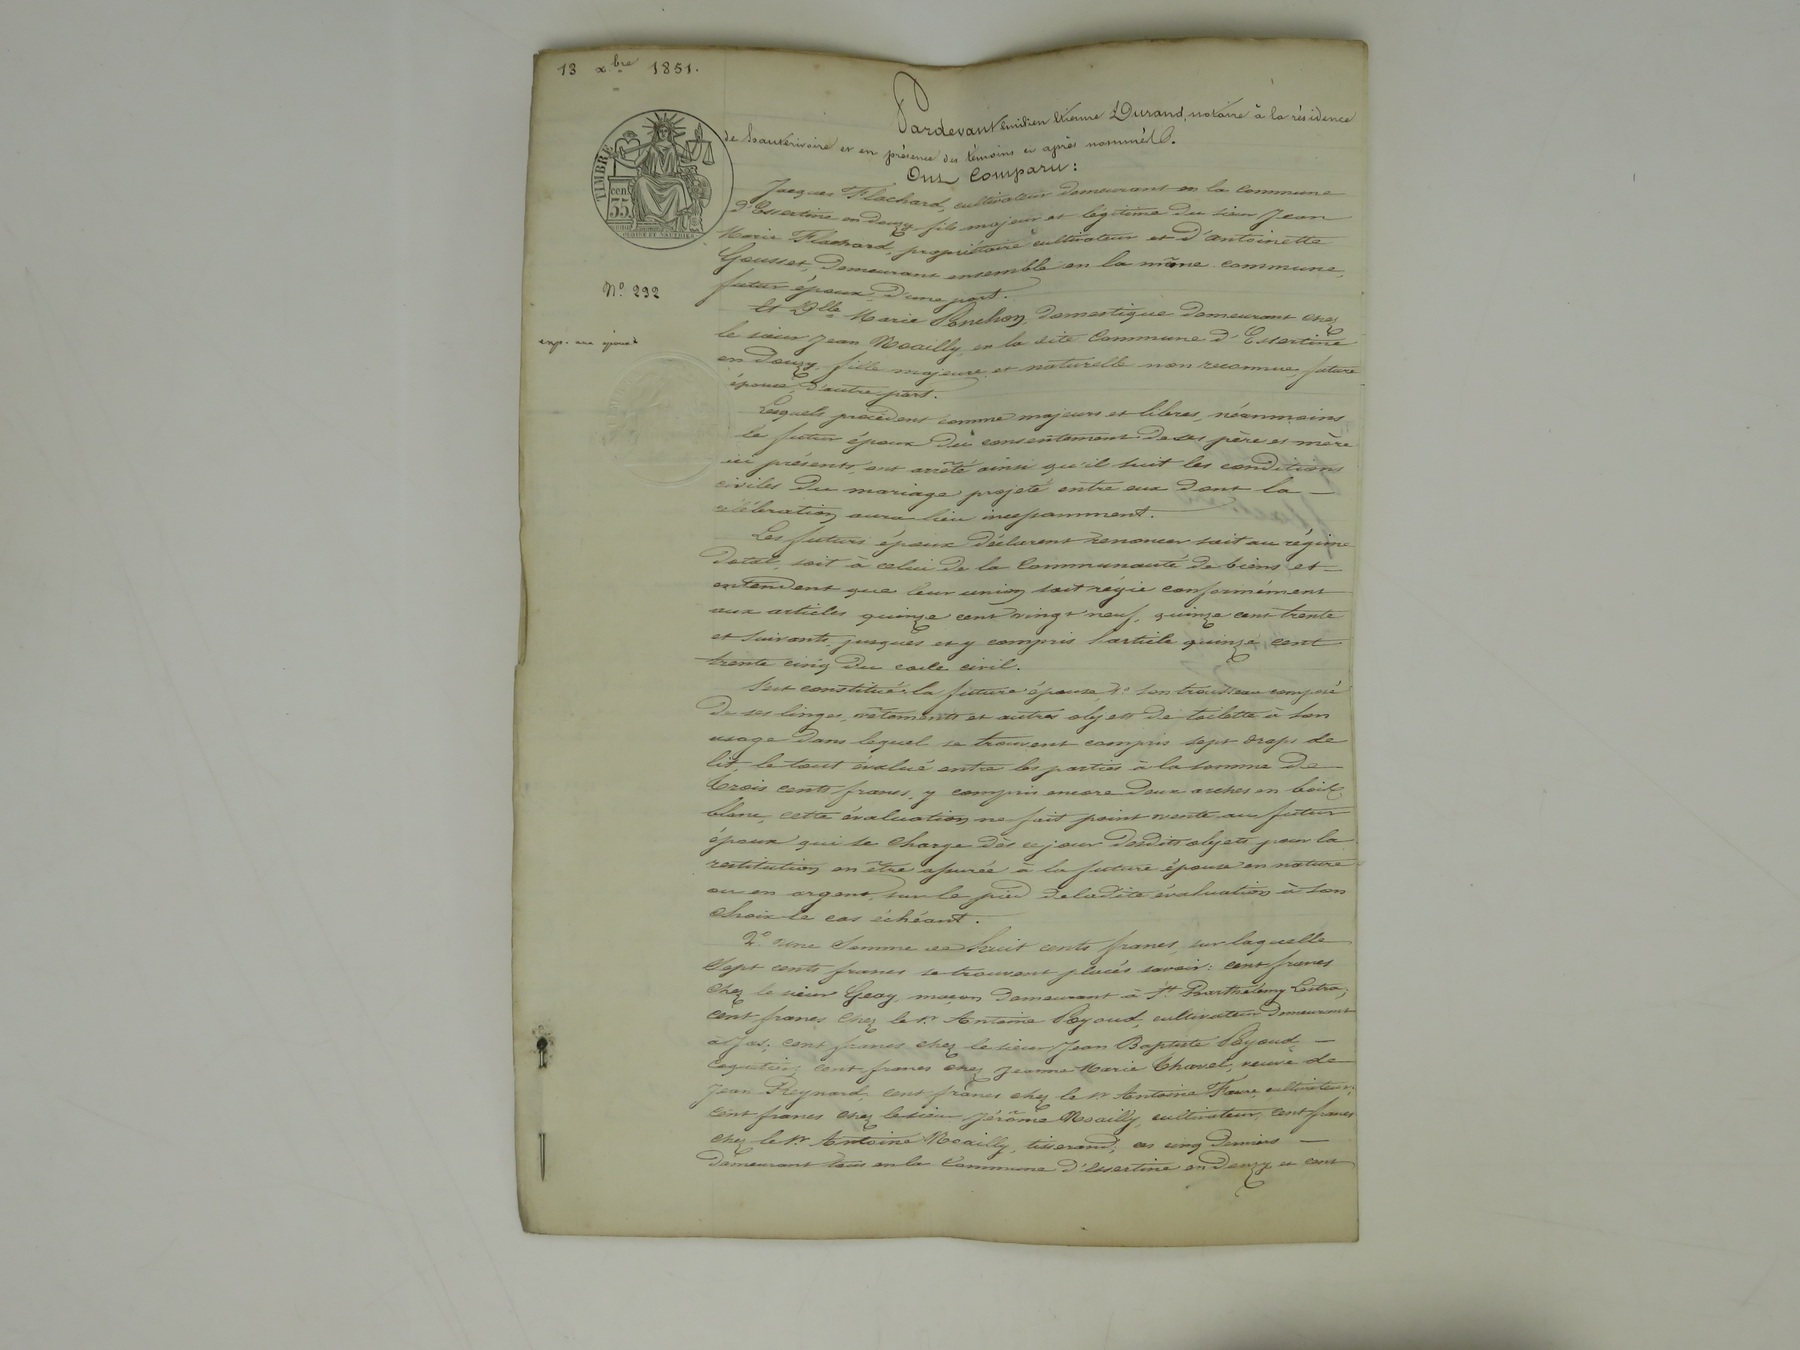 13 xbre 1851.
TIMBRE
cen
35
N° 292
exp. aux époux
Pardevant Emilien Etienne Durand, notaire à la résidence
de hauterivoire et en présence des témoins ci après nommés.
Ont Comparu :
Jacques Flachard, cultivateur demeurant en la commune
d'Essertine en donzy, fils majeur et légitime du sieur Jean
Marie Flachard, propriétaire cultivateur et d'antoinette
Gousset, demeurant ensemble en la même commune,
futur époux, d'une part.
Et Dlle Marie Ponchon, domestique demeurant chez
le sieur Jean Noailly, en la dite Commune d'Essertine
en Donzy, fille majeure et naturelle non reconnue, future
épouse, d'autre part.
Lesquels procédant comme majeurs et libres, néanmoins
le futur époux du consentement de ses père et mère
ici présents, ont arrêté ainsi qu'il suit les conditions
civiles du mariage projeté entre eux dont la
célébration aura lieu incessamment.
Les futurs époux déclarent renoncer soit au régime
dotal, soit à celui de la Communauté de biens et
entendent que leur union soit régie conformément
aux articles quinze cent vingt neuf, quinze cent trente
et suivants, jusques et y compris l'article quinze cent
trente cinq du code civil.
S'est constituée la future épouse, 1° son trousseau composé
de ses linges, vêtements et autres objets de toilette à son
usage dans lequel se trouvent compris sept draps de
lit, le tout évalué entre les parties à la somme de
trois cents francs, y compris encore deux arches en bois
blanc, cette évaluation ne fait point vente au futur
époux qui se charge dès ce jour desdits objets pour la
restitution en être assurée à la future épouse en nature
ou en argent, sur le pied de ladite évaluation à son
choix le cas échéant.
2° une Somme de huit cents francs, sur laquelle
Sept cents francs se trouvent placés savoir : cent francs
chez le sieur Geay, maçon demeurant à St Barthélemy Lestra,
cent francs chez le sr Antoine Poyaud, cultivateur demeurant
à Jas ; cent francs chez le sieur Jean Baptiste Poyaud
Coquetier, cent francs chez Jeanne Marie Chavel, veuve de
Jean Reynard, cent francs chez le sr Antoine Faure, cultivateur,
cent francs chez le sieur Jérôme Noailly, cultivateur, cent francs
chez le sr Antoine Noailly, tisserand, ces cinq derniers
demeurant tous en la Commune d'Essertine en Donzy et cent